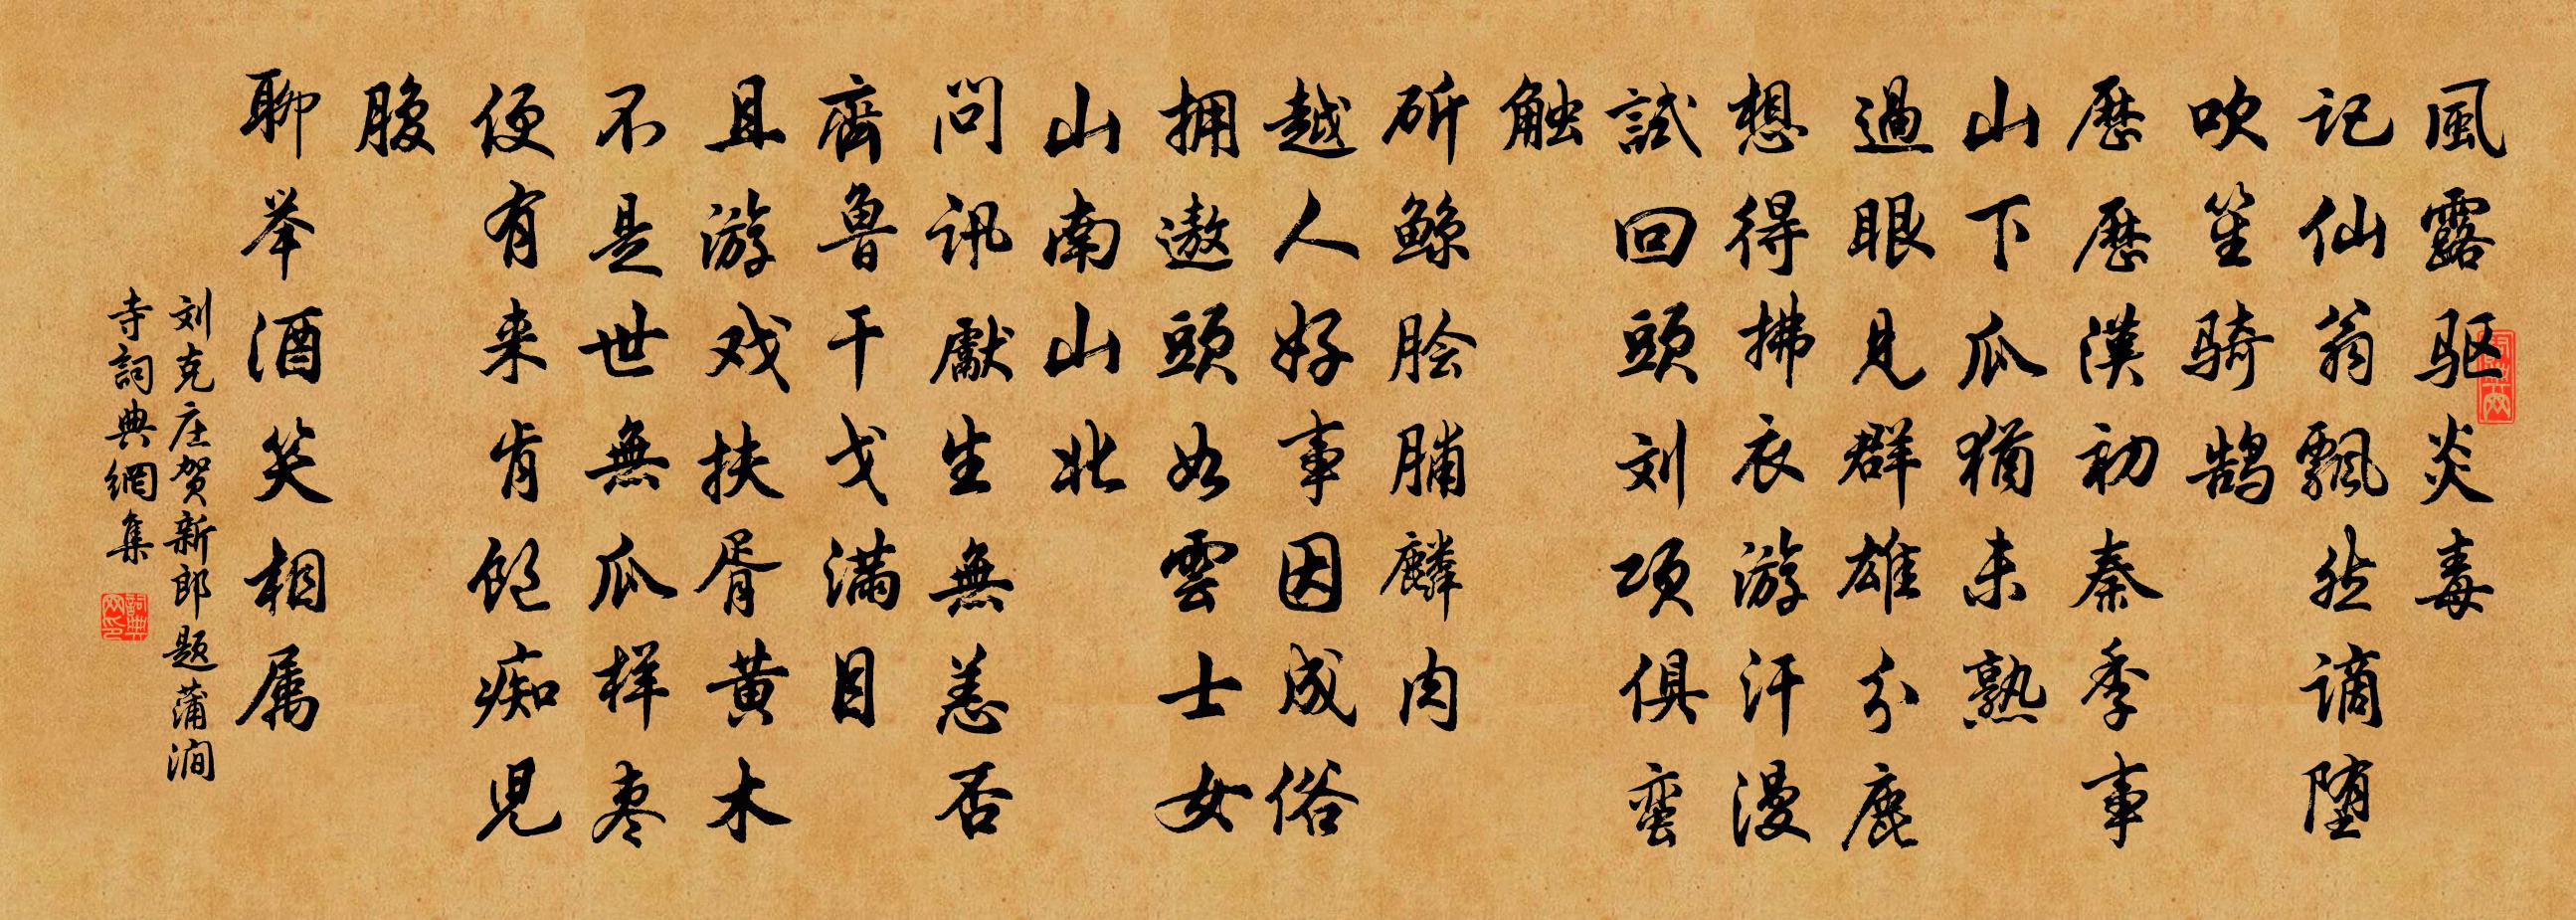 風露驱炎毒
记仙翁飄然谪堕
吹笙骑鹄
歷歷漢初秦季事
山下瓜猶未熟
過眼見群雄分鹿
想得拂衣游汗漫
試回頭刘项俱蛮
触
斫鲸脍脯麟肉
越人好事因成俗
拥遨頭如雲士女
山南山北
問讯獻生無恙否
齊鲁干戈满目
且游戏扶胥黄木
不是世無瓜样枣
便有来肯饱痴兒
腹
聊举酒笑相属
刘克庄贺新郎题蒲涧
寺詞典網集